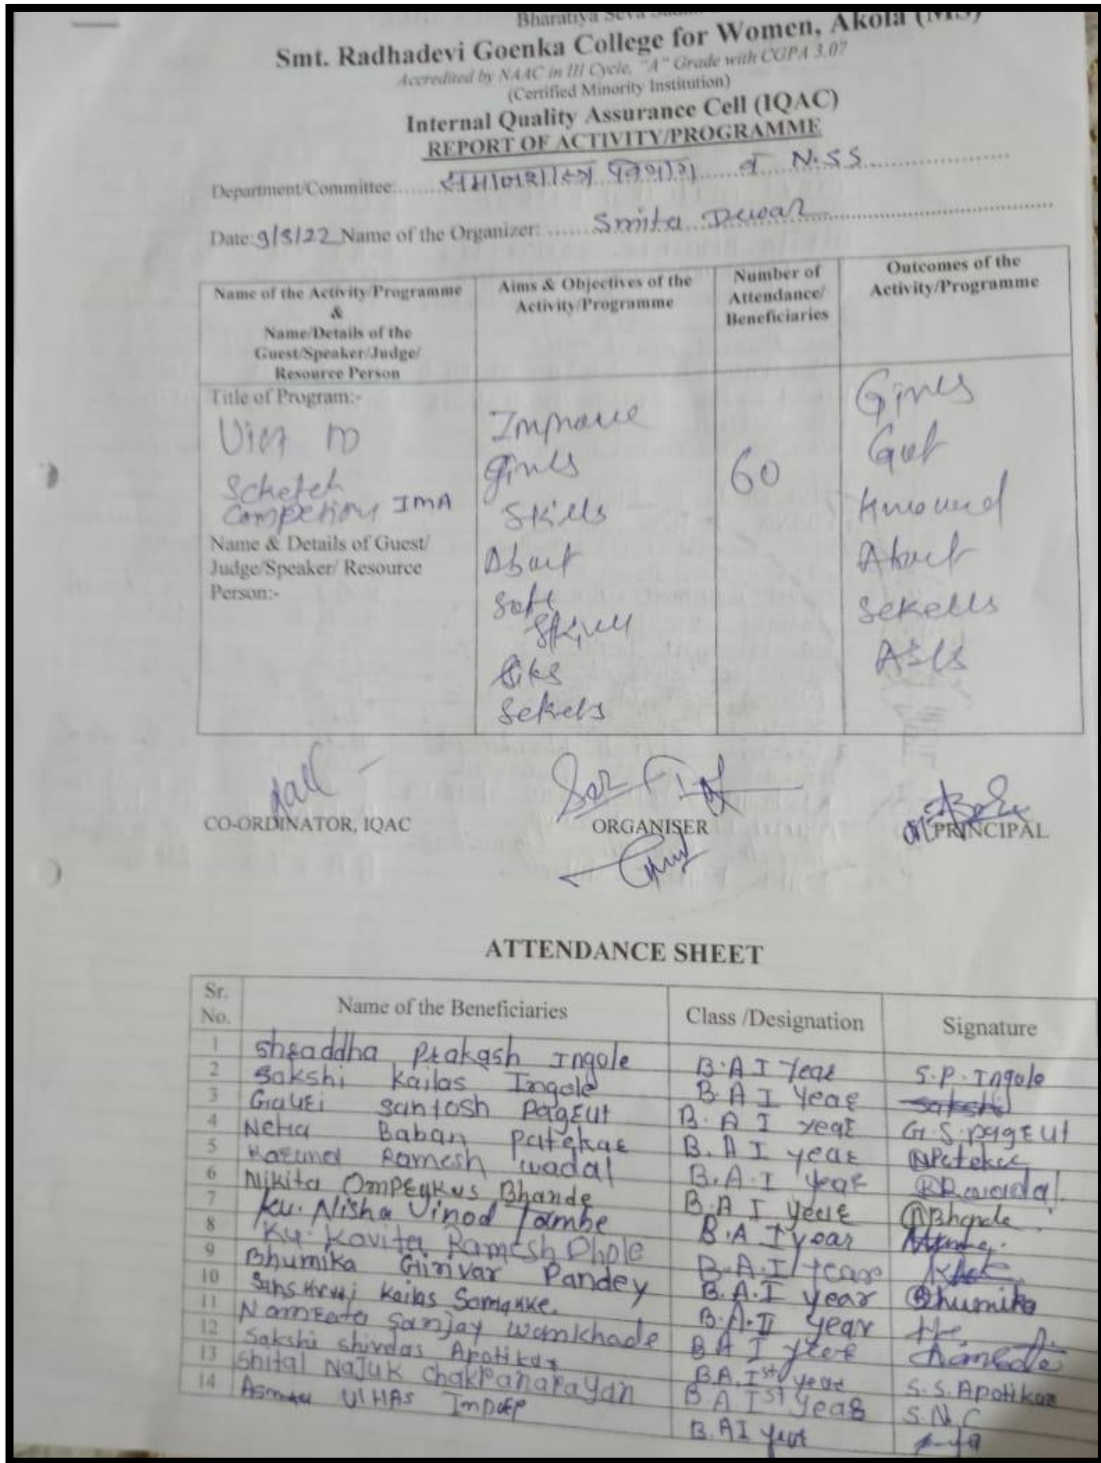 Bharatiya Seva
Smt. Radhadevi Goenka College for Women, Akola (MS)
Accredited by NAAC in III Cycle, "A" Grade with CGPA 3.07
(Certified Minority Institution)
Internal Quality Assurance Cell (IQAC)
REPORT OF ACTIVITY/PROGRAMME
Department/Committee: समाजशास्त्र विभाग व N.S.S
Date: 9/8/22 Name of the Organizer: Smita Dewar
Name of the Activity/Programme
&
Name/Details of the
Guest/Speaker/Judge/
Resource Person
Aims & Objectives of the
Activity/Programme
Number of
Attendance/
Beneficiaries
Outcomes of the
Activity/Programme
Title of Program:-
Scketch
IMA
Name & Details of Guest/
Judge/Speaker/ Resource
Person:-
Improve
girls
Skills
About
Soft
60
Girls
Get
About
CO-ORDINATOR, IQAC
ORGANISER
PRINCIPAL
ATTENDANCE SHEET
Sr. No. Name of the Beneficiaries Class /Designation Signature
1 Shraddha Prakash Ingole B.A I Year S.P. Ingole
2 Sakshi Kailas Ingole B.A I Year Sakshi
3 Gauri Santosh Pageut B.A I year G.S. pageut
4 Neha Baban Patekar B.A I year NPatekar
5 Ramesh wadal B.A.I year
6 Nikita Bhande B.A I year NBhande
7 Ku. Nisha Vinod Tambe B.A I year
8 Ku. Kavita Ramesh Dhole B.A.I year
9 Bhumika Girivar Pandey B.A.I year Bhumika
10 Kailas B.A.II year
11 Namrata Sanjay Wankhade B A I year
12 Sakshi Shivdas Apotikar B.A. Ist year S.S. Apotikar
13 Shital Najuk Chakranarayan B A Ist year S.N.C
14 B.A I year